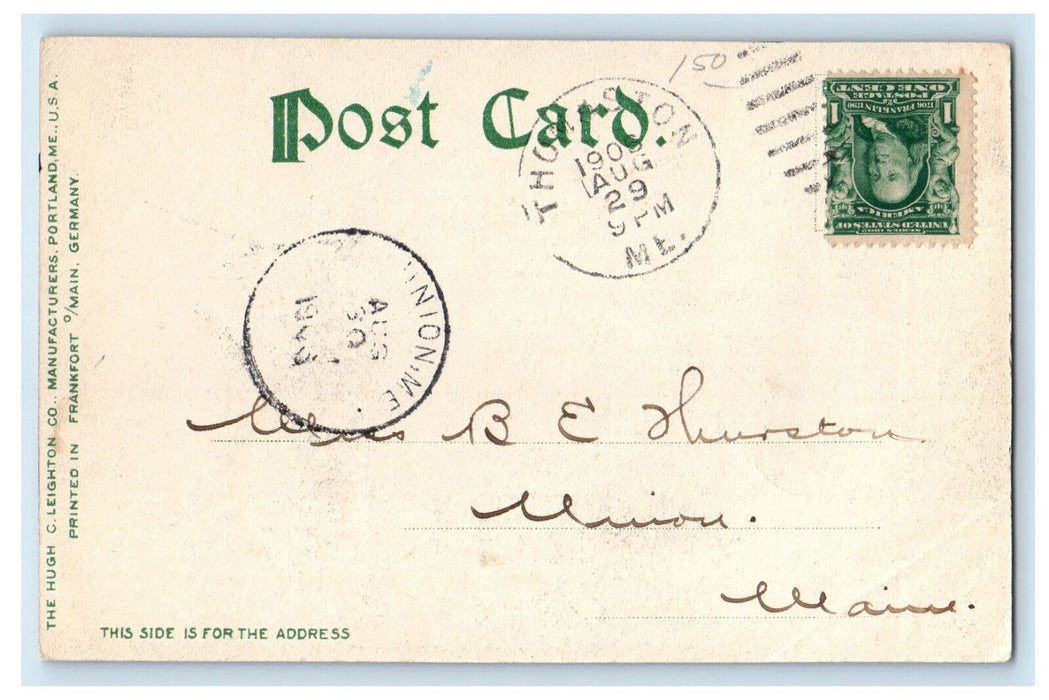 Post Card.
150
THOMASTON
AUG
29
9 PM
ME.
UNION, ME.
AUG
30
ONE CENT
POSTAGE
1 1
UNITED STATES OF
AMERICA
Miss B E Thurston
Union.
Maine.
THIS SIDE IS FOR THE ADDRESS
THE HUGH C. LEIGHTON CO., MANUFACTURERS, PORTLAND, ME., U.S.A.
PRINTED IN FRANKFORT o/MAIN, GERMANY.